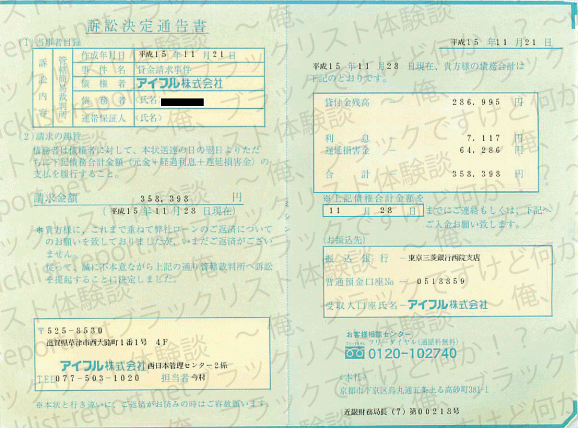 訴訟決定通告書
(1)当事者目録
訴訟内容
管轄簡易裁判所
作成年月日 平成15年11月21日
事件名 貸金請求事件
債権者 アイフル株式会社
債務者 (氏名)
連帯保証人 (氏名)
(2)請求の趣旨
債務者は債権者に対して、本状送達の日の翌日よりただ
ちに下記債務合計金額(元金+経過利息+遅延損害金)の
支払を履行すること。
請求金額 358,398 円
(平成15年11月28日現在)
※貴方様に、これまで重ねて弊社ローンのご返済について
のお願いを致しておりましたが、いまだご返済がござい
ません。
従って、誠に不本意ながら上記の通り管轄裁判所へ訴訟
を提起することに決定しました。
〒525-8530
滋賀県草津市西大路町1番1号 4F
アイフル株式会社 西日本管理センター2係
TEL 077-503-1020 担当者 今村
※本状と行き違いに、ご返済がお済みの時はご容赦願います。
平成15年11月21日
平成15年11月28日現在、貴方様の債務合計は
下記のとおりです。
貸付金残高 286,995 円
利息 7,117 円
遅延損害金 64,286 円
合計 358,398 円
※上記債務合計金額を
11月28日までにご連絡もしくは、下記へ
ご入金お願い致します。
(お振込先)
振込銀行 東京三菱銀行西院支店
普通預金口座No 0518859
受取人口座氏名 アイフル株式会社
お客様相談センター
フリーダイヤル(通話料無料)
0120-102740
<本社>
京都市下京区烏丸通五条上る高砂町381-1
近畿財務局長(7)第00218号
blacklist-report.net
ブラックリスト体験談 ~俺、ブラックですけど何か!?~